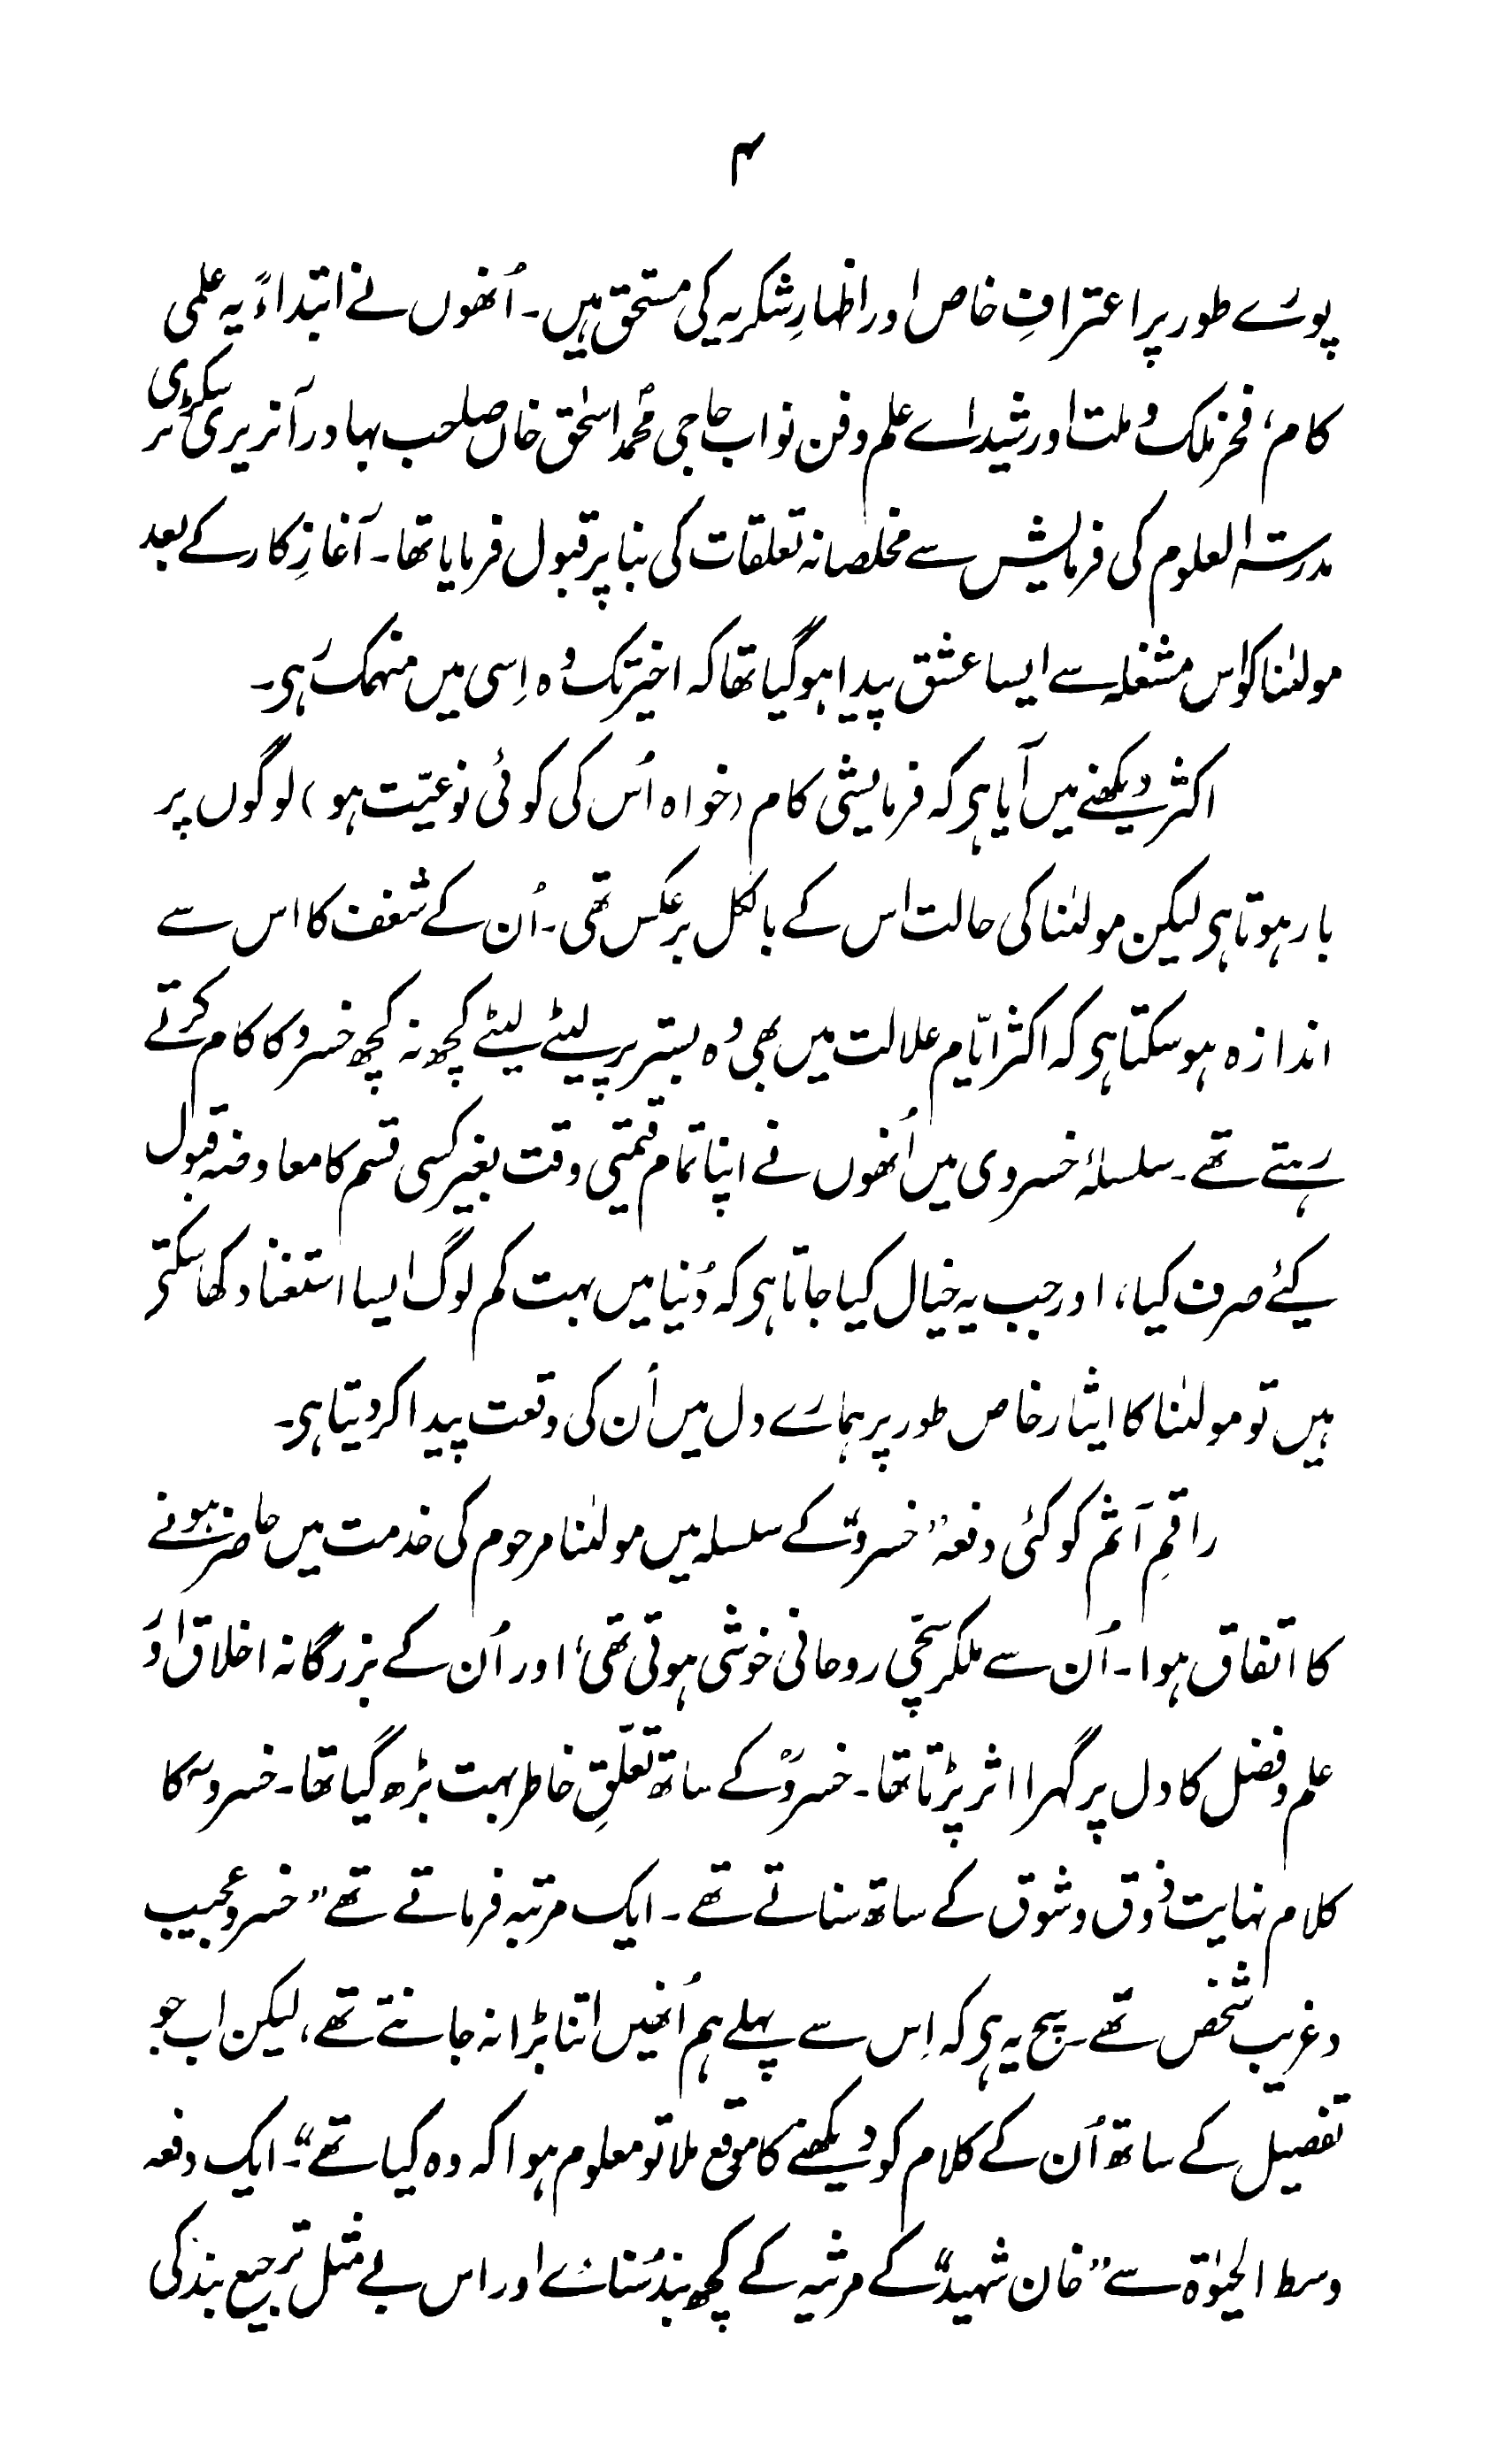 ۴
پورے طور پر اعترافِ خاص اور اظہارِ شکریہ کی مستحق ہیں۔ اُنھوں نے ابتداءً یہ علمی
کام، فخرِ ملک و ملت اور شیداے علم و فن نواب حاجی محمد اسحٰق خاں صاحب بہادر آنریری سکرٹری
مدرسۃ العلوم کی فرمایش سے مخلصانہ تعلقات کی بنا پر قبول فرمایا تھا۔ آغازِ کار کے بعد
مولٰنا کو اس مشغلہ سے ایسا عشق پیدا ہو گیا تھا کہ اخیر تک وُہ اِسی میں منہمک رَہی۔
اکثر دیکھنے میں آیا ہی کہ فرمایشی کام (خواہ اُس کی کوئی نوعیّت ہو) لوگوں پر
بار ہوتا ہی لیکن مولٰنا کی حالت اس کے بالکل برعکس تھی۔ اُن کے شغف کا اس سے
اندازہ ہو سکتا ہی کہ اکثر ایّام علالت میں بھی وُہ بستر پر لیٹے لیٹے کچھ نہ کچھ خسرو کا کام کرتے
رَہتے تھے۔ سلسلۂ خسروی میں اُنھوں نے اپنا تمام قیمتی وقت بغیر کسی قسم کا معاوضہ قبول
کیئے صرف کیا، اور جب یہ خیال کیا جاتا ہی کہ دُنیا میں بہت کم لوگ ایسا استغنا دکھا سکتے
ہیں تو مولٰنا کا ایثار خاص طور پر ہمارے دل میں اُن کی وقعت پیدا کر دیتا ہی۔
راقمِ آثم کو کئی دفعہ ”خسرو“ کے سلسلہ میں مولٰنا مرحوم کی خدمت میں حاضر ہونے
کا اتفاق ہوا۔ اُن سے ملکر سچّی روحانی خوشی ہوتی تھی، اور اُن کے بزرگانہ اخلاق اوَر
علم و فضل کا دل پر گہرا اثر پڑتا تھا۔ خسروؒ کے ساتھ تعلّقِ خاطر بہت بڑھ گیا تھا۔ خسروؒ کا
کلام نہایت ذوق و شوق کے ساتھ سناتے تھے۔ ایک مرتبہ فرماتے تھے ”خسرو عجیب
و غریب شخص تھے۔ سچ یہ ہی کہ اِس سے پہلے ہم اُنھیں اتنا بڑا نہ جانتے تھے، لیکن اب جو
تفصیل کے ساتھ اُن کے کلام کو دیکھنے کا موقع ملا تو معلوم ہوا کہ وہ کیا تھے“۔ ایک دفعہ
وسط الحیٰوۃ سے ”خان شہید“ کے مرثیہ کے کچھ بند سُنائے اور اس بے مثل ترجیع بند کی